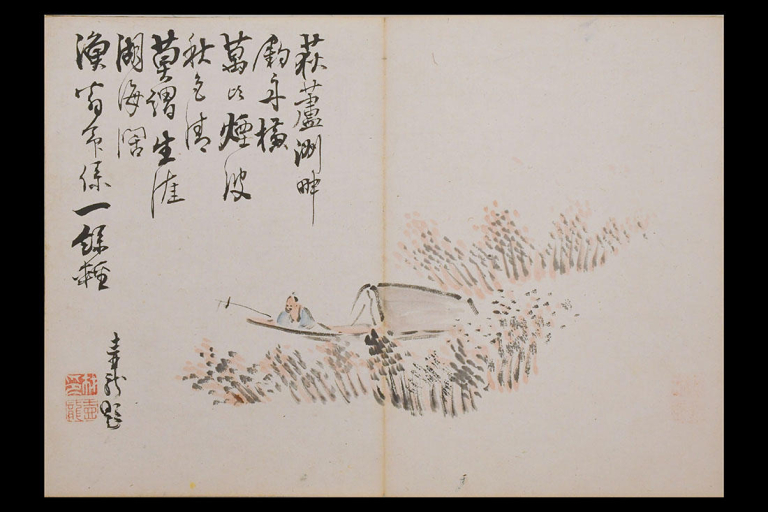 荻蘆洲畔
釣舟橫
萬頃煙波
秋色清
莫謂生涯
湖海闊
漁翁係一絲輕
龍題